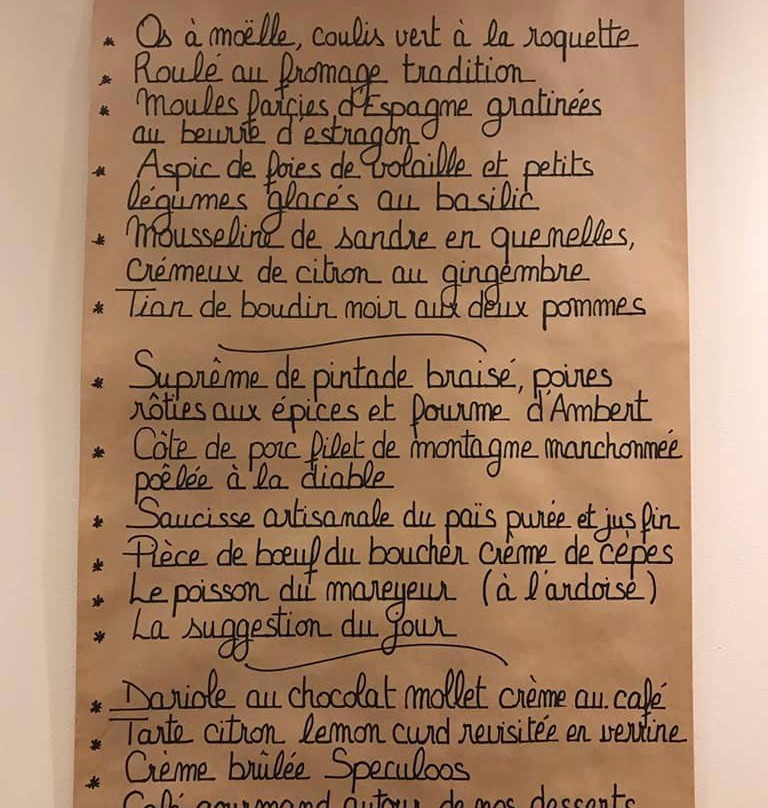 * Os à moëlle, coulis vert à la roquette
* Roulé au fromage tradition
* Moules farcies d'Espagne gratinées
au beurre d'estragon
* Aspic de foies de volaille et petits
légumes glacés au basilic
* Mousseline de sandre en quenelles,
crémeux de citron au gingembre
* Tian de boudin noir aux deux pommes
* Suprême de pintade braisé, poires
rôties aux épices et fourme d'Ambert
* Côte de porc filet de montagne manchonnée
poêlée à la diable
* Saucisse artisanale du païs purée et jus fin
* Pièce de bœuf du boucher crème de cèpes
* Le poisson du mareyeur (à l'ardoise)
* La suggestion du jour
* Dariole au chocolat mollet crème au café
* Tarte citron lemon curd revisitée en verrine
* Crème brûlée Speculoos
Café gourmand autour de nos desserts